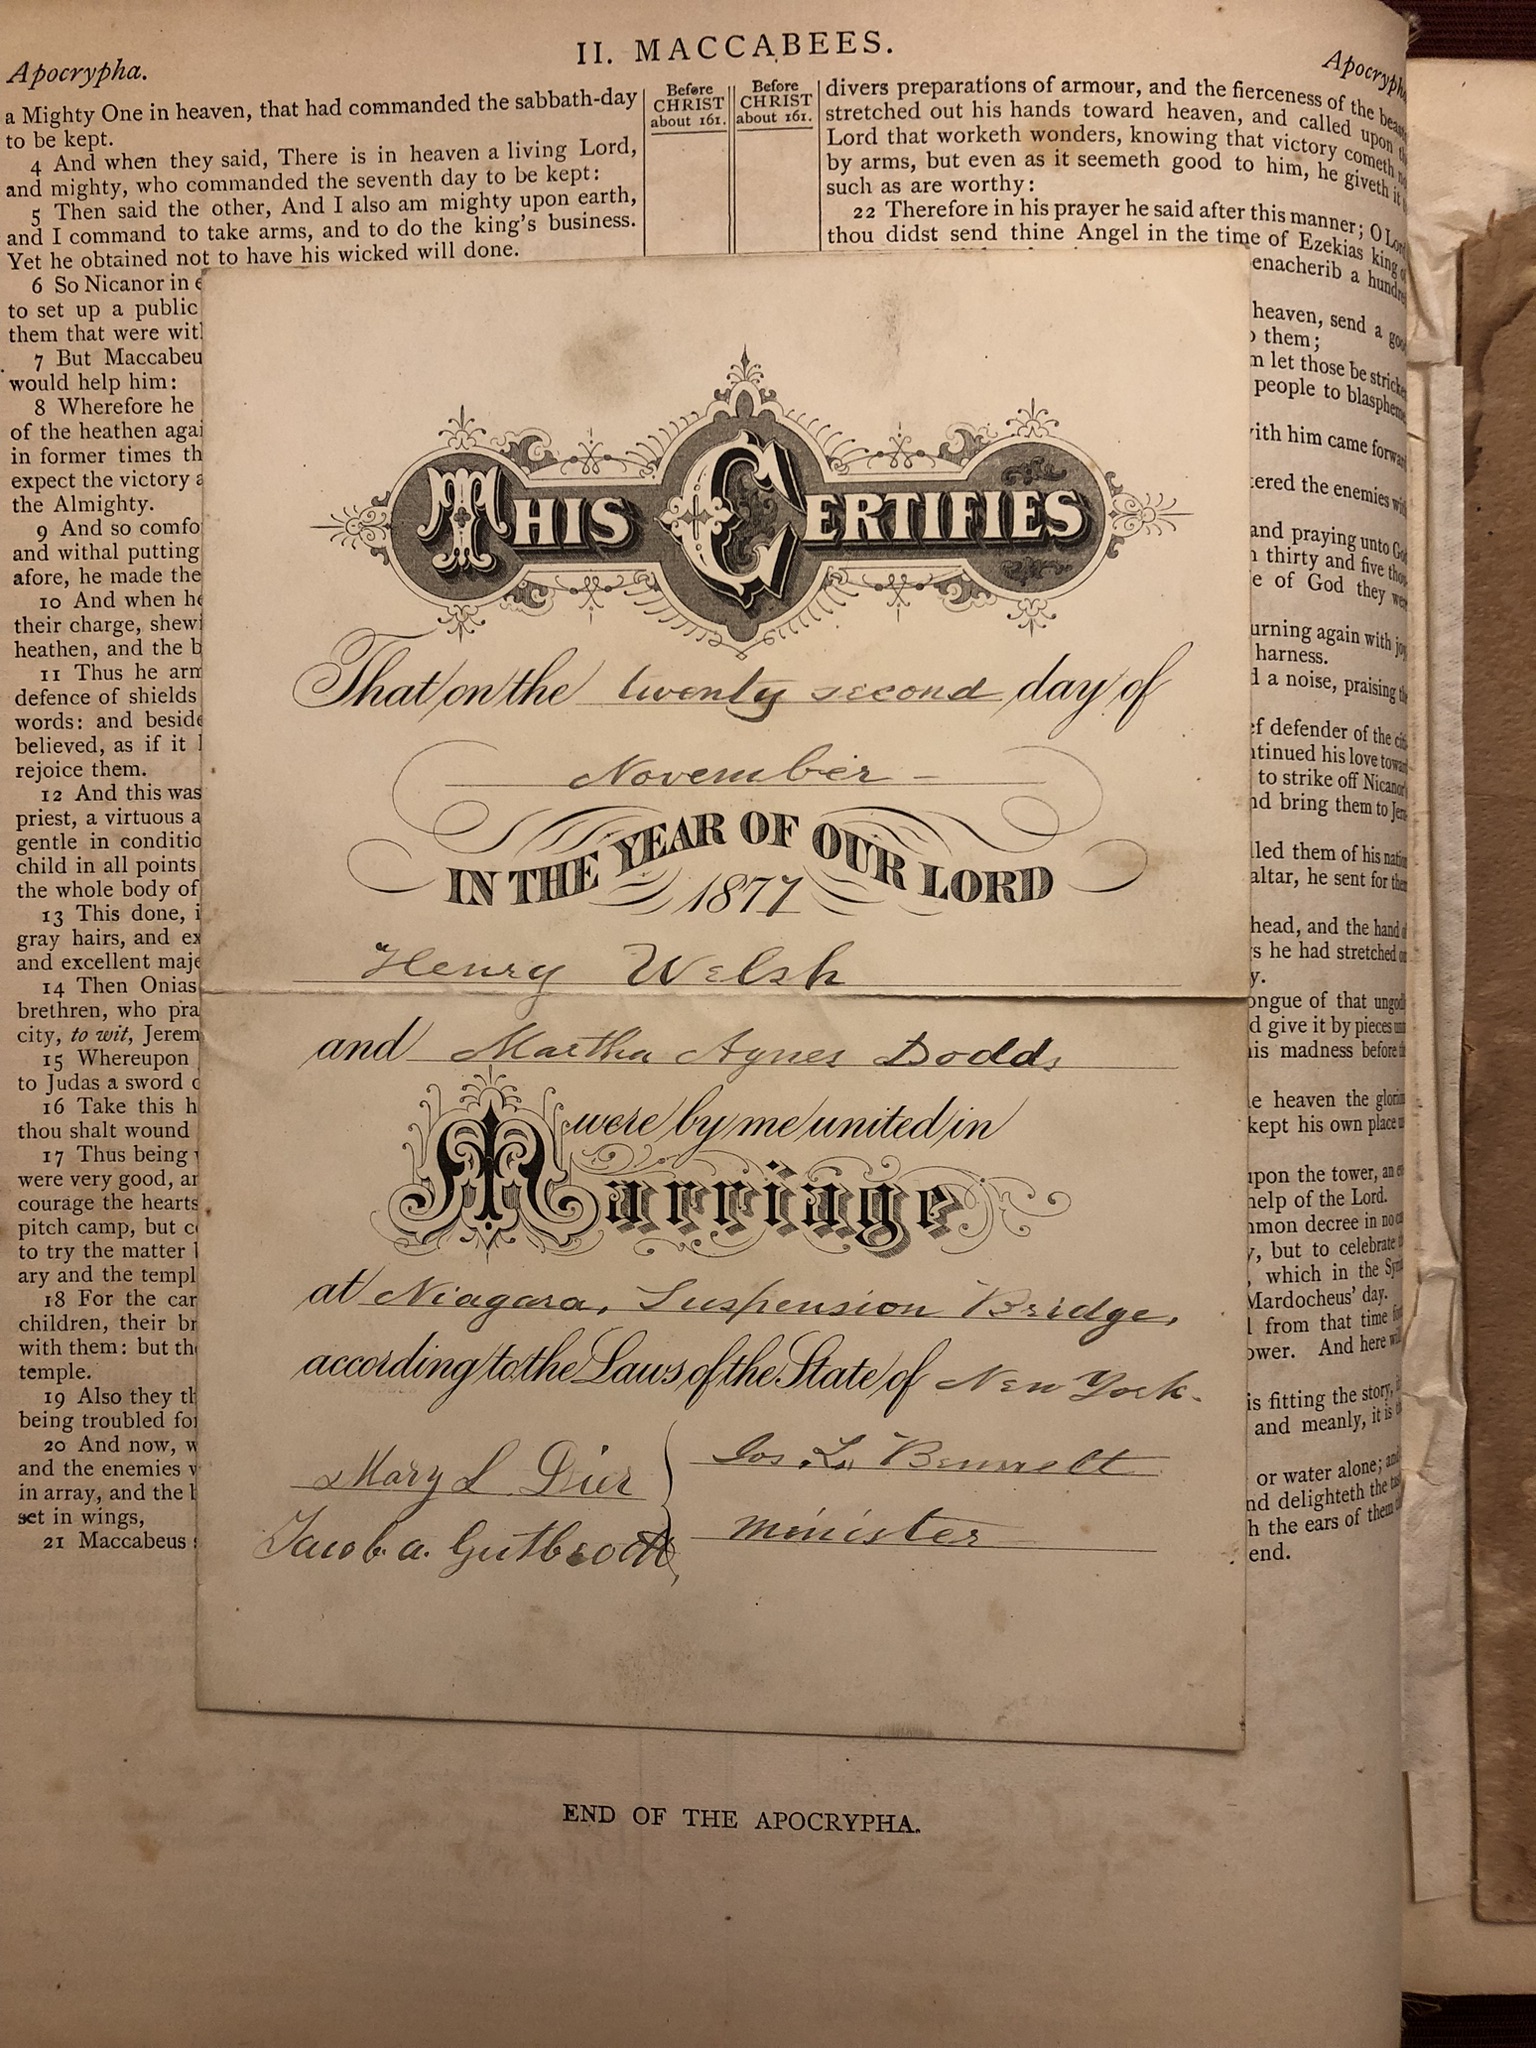 II. MACCABEES.
Apocrypha.
a Mighty One in heaven, that had commanded the sabbath-day
to be kept.
4 And when they said, There is in heaven a living Lord,
and mighty, who commanded the seventh day to be kept:
5 Then said the other, And I also am mighty upon earth,
and I command to take arms, and to do the king's business.
Yet he obtained not to have his wicked will done.
6 So Nicanor in
to set up a public
them that were
7 But Maccabeu
would help him:
8 Wherefore he
of the heathen agai
in former times th
expect the victory
the Almighty.
9 And so comfo
and withal putting
afore, he made the
10 And when
their charge, shew
heathen, and the b
11 Thus he arm
defence of shields
words: and beside
believed, as if it
rejoice them.
12 And this was
priest, a virtuous a
gentle in conditio
child in all points
the whole body of
13 This done,
gray hairs, and ex
and excellent maje
14 Then Onias
brethren, who pra
city, to wit, Jerem
15 Whereupon
to Judas a sword
16 Take this h
thou shalt wound
17 Thus being
were very good, an
courage the hearts
pitch camp, but
to try the matter
ary and the templ
18 For the car
children, their br
with them: but th
temple.
19 Also they th
being troubled for
20 And now, w
and the enemies
in array, and the
set in wings,
21 Maccabeus
Before
CHRIST
about 161.
Before
CHRIST
about 161.
divers preparations of armour, and the fierceness of the
stretched out his hands toward heaven, and called upon
Lord that worketh wonders, knowing that victory cometh
by arms, but even as it seemeth good to him, he giveth it
such as are worthy:
22 Therefore in his prayer he said after this manner; O Lord
thou didst send thine Angel in the time of Ezekias king of
enacherib a
heaven, send a
them;
let those be
people to
with him came
the enemies
and praying unto
thirty and five
of God they
again with
harness.
a noise, praising
defender of the
his love
to strike off
bring them to
them of his
altar, he sent for
head, and the hand
he had stretched
of that
give it by pieces
his madness before
heaven the
kept his own place
upon the tower, an
help of the Lord.
decree in no
but to celebrate
which in the
Mardocheus' day.
from that time
And here
is fitting the story,
and meanly, it is
or water alone;
delighteth the
the ears of them
end.
THIS CERTIFIES
That on the twenty second day of
November
IN THE YEAR OF OUR LORD
1877
Henry Welsh
and Martha Agnes Dodds
were by me united in
Marriage
at Niagara, Suspension Bridge,
according to the Laws of the State of New York.
Mary L Dier
Jos. L. Bennett
Jacob. a.
minister
END OF THE APOCRYPHA.